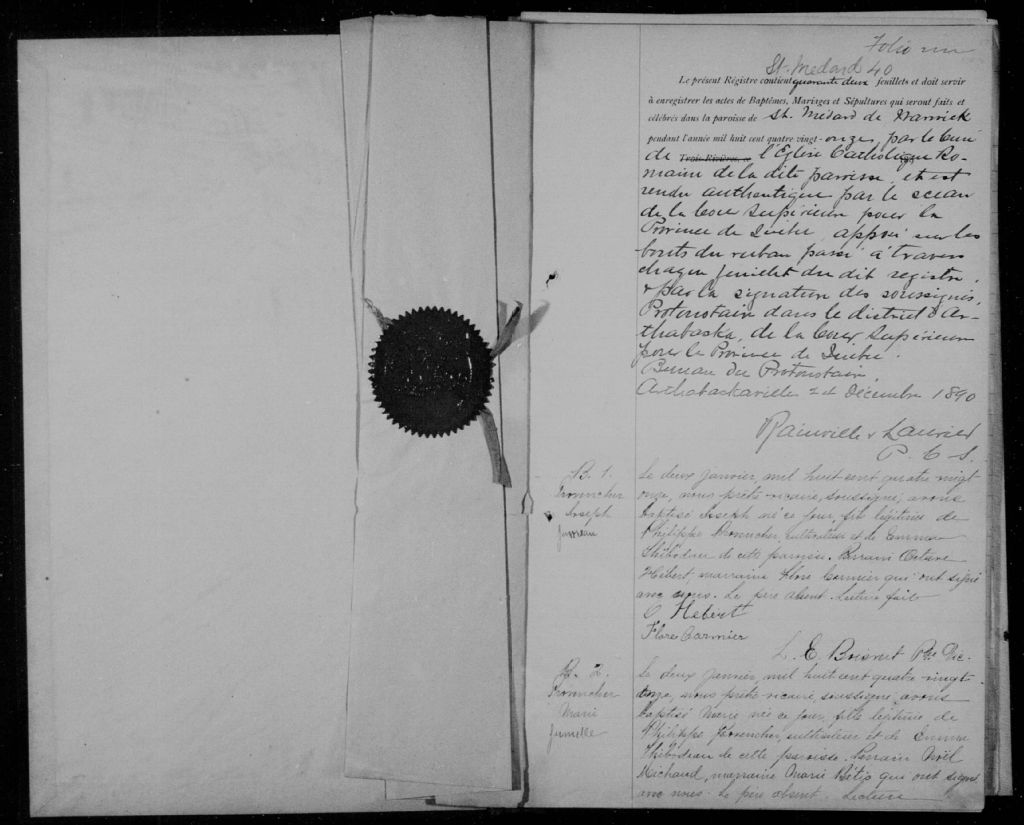 Folio un
St. Medard 40
Le présent Régistre contient quarante deux feuillets et doit servir
à enregistrer les actes de Baptêmes, Mariages et Sépultures qui seront faits et
célébrés dans la paroisse de St. Médard de Warwick
pendant l'année mil huit cent quatre vingt-onze, par le Curé
de Trois-Rivières, a l'Eglise Catholique Ro-
maine de la dite paroisse, et est
rendu authentique par le sceau
de la Cour Supérieure pour la
Province de Québec, apposé sur les
bouts du ruban passé à travers
chaque feuillet du dit registre,
& par la signature des soussignés,
Protonotaire dans le district d'Ar-
thabaska, de la Cour Supérieure
pour la Province de Québec.
Bureau du Protonotaire,
Arthabaskaville 2 Décembre 1890
Rainville & Laurier
P. C. S.
B. 1.
Joseph
jumeau
Le deux Janvier, mil huit cent quatre vingt
onze, nous prêtre-vicaire, soussigné, avons
baptisé Joseph né ce jour, fils légitime de
Philippe cultivateur et de Emma
Thibodeau de cette paroisse. Parrain Octave
Hébert, marraine Flore Cormier qui ont signé
avec nous. Le père absent. Lecture faite
O. Hebert
Flore Cormier
L. E. Ptre Vic.
B. 2.
Marie
jumelle
Le deux Janvier, mil huit cent quatre-vingt-
onze, nous prêtre-vicaire, soussigné, avons
baptisé Marie née ce jour, fille légitime de
Philippe cultivateur et de Emma
Thibodeau de cette paroisse. Parrain Noël
Michaud, marraine Marie qui ont signé
avec nous. Le père absent. Lecture